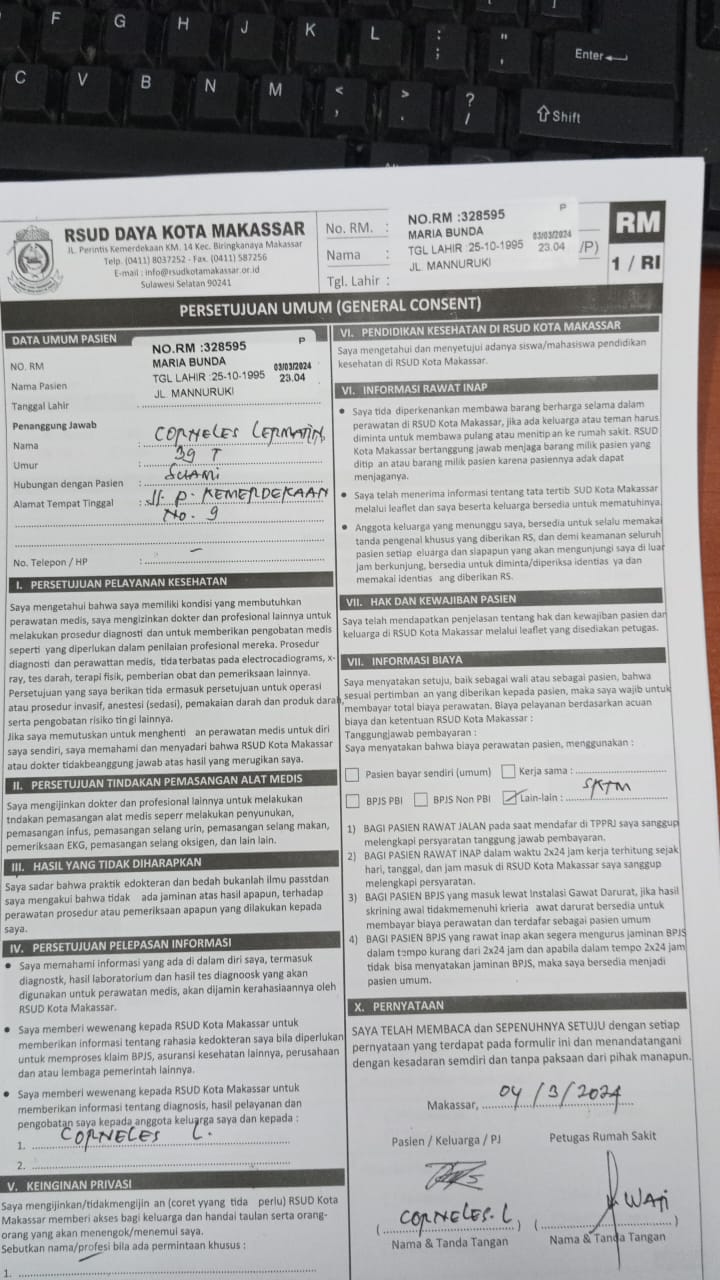 F G H J K L : ; " '
Enter
C V B N M < , > . ? /
Shift
RSUD DAYA KOTA MAKASSAR
JL. Perintis Kemerdekaan KM. 14 Kec. Biringkanaya Makassar
Telp. (0411) 8037252 - Fax. (0411) 587256
E-mail : info@rsudkotamakassar.or.id
Sulawesi Selatan 90241
No. RM. :
Nama :
Tgl. Lahir :
P
NO.RM :328595
MARIA BUNDA 03/03/2024
TGL LAHIR :25-10-1995 23.04
JL. MANNURUKI
/P)
RM
1 / RI
PERSETUJUAN UMUM (GENERAL CONSENT)
DATA UMUM PASIEN
P
NO.RM :328595
MARIA BUNDA 03/03/2024
TGL LAHIR :25-10-1995 23.04
JL. MANNURUKI
NO. RM
Nama Pasien
Tanggal Lahir
Penanggung Jawab
Nama : CORNELES LERMATIN
Umur : 39 T
Hubungan dengan Pasien : SUAMI
Alamat Tempat Tinggal : Jl. P. KEMERDEKAAN
No. 9
No. Telepon / HP : –
I. PERSETUJUAN PELAYANAN KESEHATAN
Saya mengetahui bahwa saya memiliki kondisi yang membutuhkan
perawatan medis, saya mengizinkan dokter dan profesional lainnya untuk
melakukan prosedur diagnosti dan untuk memberikan pengobatan medis
seperti yang diperlukan dalam penilaian profesional mereka. Prosedur
diagnosti dan perawattan medis, tida terbatas pada electrocadiograms, x-
ray, tes darah, terapi fisik, pemberian obat dan pemeriksaan lainnya.
Persetujuan yang saya berikan tida ermasuk persetujuan untuk operasi
atau prosedur invasif, anestesi (sedasi), pemakaian darah dan produk darah,
serta pengobatan risiko tingi lainnya.
Jika saya memutuskan untuk menghenti an perawatan medis untuk diri
saya sendiri, saya memahami dan menyadari bahwa RSUD Kota Makassar
atau dokter tidakbeanggung jawab atas hasil yang merugikan saya.
II. PERSETUJUAN TINDAKAN PEMASANGAN ALAT MEDIS
Saya mengijinkan dokter dan profesional lainnya untuk melakukan
tndakan pemasangan alat medis seperr melakukan penyunukan,
pemasangan infus, pemasangan selang urin, pemasangan selang makan,
pemeriksaan EKG, pemasangan selang oksigen, dan lain lain.
III. HASIL YANG TIDAK DIHARAPKAN
Saya sadar bahwa praktik edokteran dan bedah bukanlah ilmu passtdan
saya mengakui bahwa tidak ada jaminan atas hasil apapun, terhadap
perawatan prosedur atau pemeriksaan apapun yang dilakukan kepada
saya.
IV. PERSETUJUAN PELEPASAN INFORMASI
• Saya memahami informasi yang ada di dalam diri saya, termasuk
diagnostk, hasil laboratorium dan hasil tes diagnoosk yang akan
digunakan untuk perawatan medis, akan dijamin kerahasiaannya oleh
RSUD Kota Makassar.
• Saya memberi wewenang kepada RSUD Kota Makassar untuk
memberikan informasi tentang rahasia kedokteran saya bila diperlukan
untuk memproses klaim BPJS, asuransi kesehatan lainnya, perusahaan
dan atau lembaga pemerintah lainnya.
• Saya memberi wewenang kepada RSUD Kota Makassar untuk
memberikan informasi tentang diagnosis, hasil pelayanan dan
pengobatan saya kepada anggota keluarga saya dan kepada :
1. CORNELES L.
2.
V. KEINGINAN PRIVASI
Saya mengijinkan/tidakmengijin an (coret yyang tida perlu) RSUD Kota
Makassar memberi akses bagi keluarga dan handai taulan serta orang-
orang yang akan menengok/menemui saya.
Sebutkan nama/profesi bila ada permintaan khusus :
1.
VI. PENDIDIKAN KESEHATAN DI RSUD KOTA MAKASSAR
Saya mengetahui dan menyetujui adanya siswa/mahasiswa pendidikan
kesehatan di RSUD Kota Makassar.
VI. INFORMASI RAWAT INAP
• Saya tida diperkenankan membawa barang berharga selama dalam
perawatan di RSUD Kota Makassar, jika ada keluarga atau teman harus
diminta untuk membawa pulang atau menitip an ke rumah sakit. RSUD
Kota Makassar bertanggung jawab menjaga barang milik pasien yang
ditip an atau barang milik pasien karena pasiennya adak dapat
menjaganya.
• Saya telah menerima informasi tentang tata tertib SUD Kota Makassar
melalui leaflet dan saya beserta keluarga bersedia untuk mematuhinya.
• Anggota keluarga yang menunggu saya, bersedia untuk selalu memakai
tanda pengenal khusus yang diberikan RS, dan demi keamanan seluruh
pasien setiap eluarga dan siapapun yang akan mengunjungi saya di luar
jam berkunjung, bersedia untuk diminta/diperiksa identias ya dan
memakai identias ang diberikan RS.
VII. HAK DAN KEWAJIBAN PASIEN
Saya telah mendapatkan penjelasan tentang hak dan kewajiban pasien dan
keluarga di RSUD Kota Makassar melalui leaflet yang disediakan petugas.
VII. INFORMASI BIAYA
Saya menyatakan setuju, baik sebagai wali atau sebagai pasien, bahwa
sesuai pertimban an yang diberikan kepada pasien, maka saya wajib untuk
membayar total biaya perawatan. Biaya pelayanan berdasarkan acuan
biaya dan ketentuan RSUD Kota Makassar :
Tanggungjawab pembayaran :
Saya menyatakan bahwa biaya perawatan pasien, menggunakan :
Pasien bayar sendiri (umum) Kerja sama :
BPJS PBI BPJS Non PBI Lain-lain : SKTM
1) BAGI PASIEN RAWAT JALAN pada saat mendafar di TPPRJ saya sanggup
melengkapi persyaratan tanggung jawab pembayaran.
2) BAGI PASIEN RAWAT INAP dalam waktu 2x24 jam kerja terhitung sejak
hari, tanggal, dan jam masuk di RSUD Kota Makassar saya sanggup
melengkapi persyaratan.
3) BAGI PASIEN BPJS yang masuk lewat Instalasi Gawat Darurat, jika hasil
skrining awai tidakmemenuhi krieria awat darurat bersedia untuk
membayar biaya perawatan dan terdafar sebagai pasien umum
4) BAGI PASIEN BPJS yang rawat inap akan segera mengurus jaminan BPJS
dalam tempo kurang dari 2x24 jam dan apabila dalam tempo 2x24 jam
tidak bisa menyatakan jaminan BPJS, maka saya bersedia menjadi
pasien umum.
X. PERNYATAAN
SAYA TELAH MEMBACA dan SEPENUHNYA SETUJU dengan setiap
pernyataan yang terdapat pada formulir ini dan menandatangani
dengan kesadaran semdiri dan tanpa paksaan dari pihak manapun.
Makassar, 04/3/2024
Pasien / Keluarga / PJ Petugas Rumah Sakit
(CORNELES. L) (WATI)
Nama & Tanda Tangan Nama & Tanda Tangan